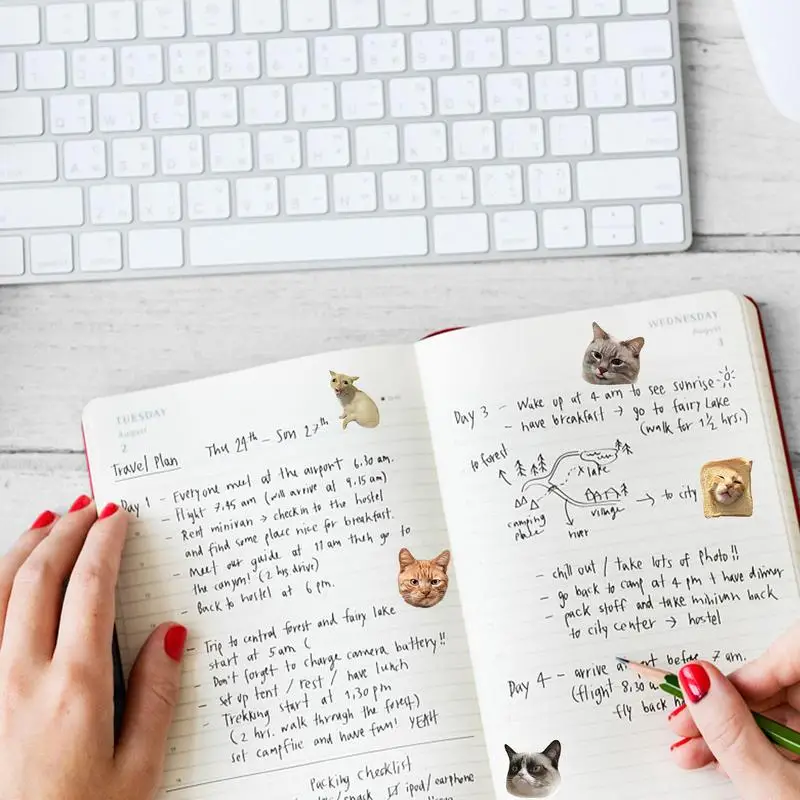 TUESDAY
August
2
Travel Plan
Thu 24th - Sun 27th
Day 1 - Everyone meet at the airport 6.30 am.
- Flight 7.45 am (will arrive at 9.15 am)
- Rent minivan → checkin to the hostel
and find some place nice for breakfast.
- Meet our guide at 11 am then go to
the canyon! (2 hrs. drive)
- Back to hostel at 6 pm.
- Trip to central forest and fairy lake
start at 5 am (
Don't forget to charge camera battery!!
- Set up tent / rest / have lunch
- Trekking start at 1.30 pm
(2 hrs. walk through the forest)
set campfire and have fun! YEAH
Packing Checklist
ipod/earphone
WEDNESDAY
August
3
Day 3 - Wake up at 4 am to see sunrise
- have breakfast → go to fairy Lake
(walk for 1½ hrs.)
to forest
lake
camping
place
village
river
→ to city
- chill out / take lots of photo!!
- go back to camp at 4 pm + have dinner
- pack stuff and take minivan back
to city center → hostel
Day 4 - arrive before 7 am.
(flight 8.30
fly back